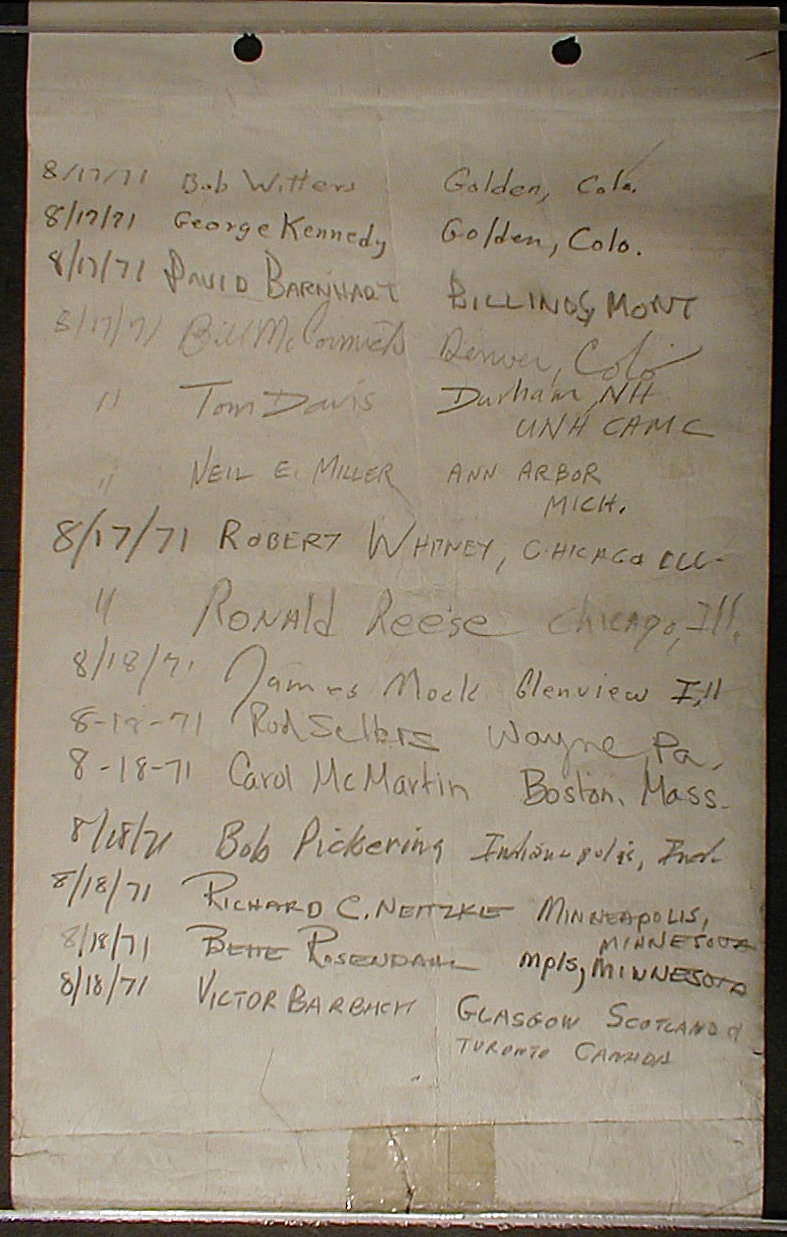 8/17/71 Bob Witters Golden, Colo.
8/17/71 George Kennedy Golden, Colo.
8/17/71 DAVID BARNHART BILLINGS, MONT
8/17/71 Bill McCormick Denver, Colo
" Tom Davis Durham, NH
UNH CAMC
" NEIL E. MILLER ANN ARBOR
MICH.
8/17/71 ROBERT WHITNEY, CHICAGO ILL
" RONAld Reese Chicago, Ill.
8/18/71 James Mock Glenview Ill
8-18-71 Rod Sellers Wayne, Pa.
8-18-71 Carol McMartin Boston, Mass.
8/18/71 Bob Pickering Indianapolis, Ind.
8/18/71 RICHARD C. NEITZKE MINNEAPOLIS,
MINNESOTA
8/18/71 BETTE ROSENDAHL Mpls, MINNESOTA
8/18/71 VICTOR BARBACH GLASGOW SCOTLAND
TORONTO CANADA